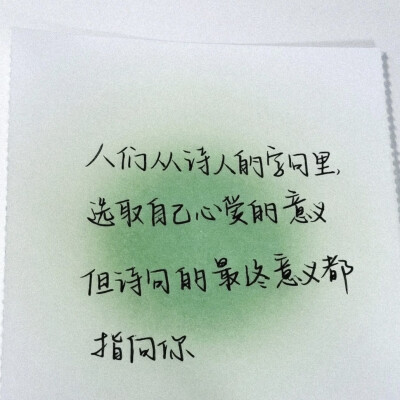 人们从诗人的字句里,
选取自己心爱的意义
但诗句的最终意义都
指向你